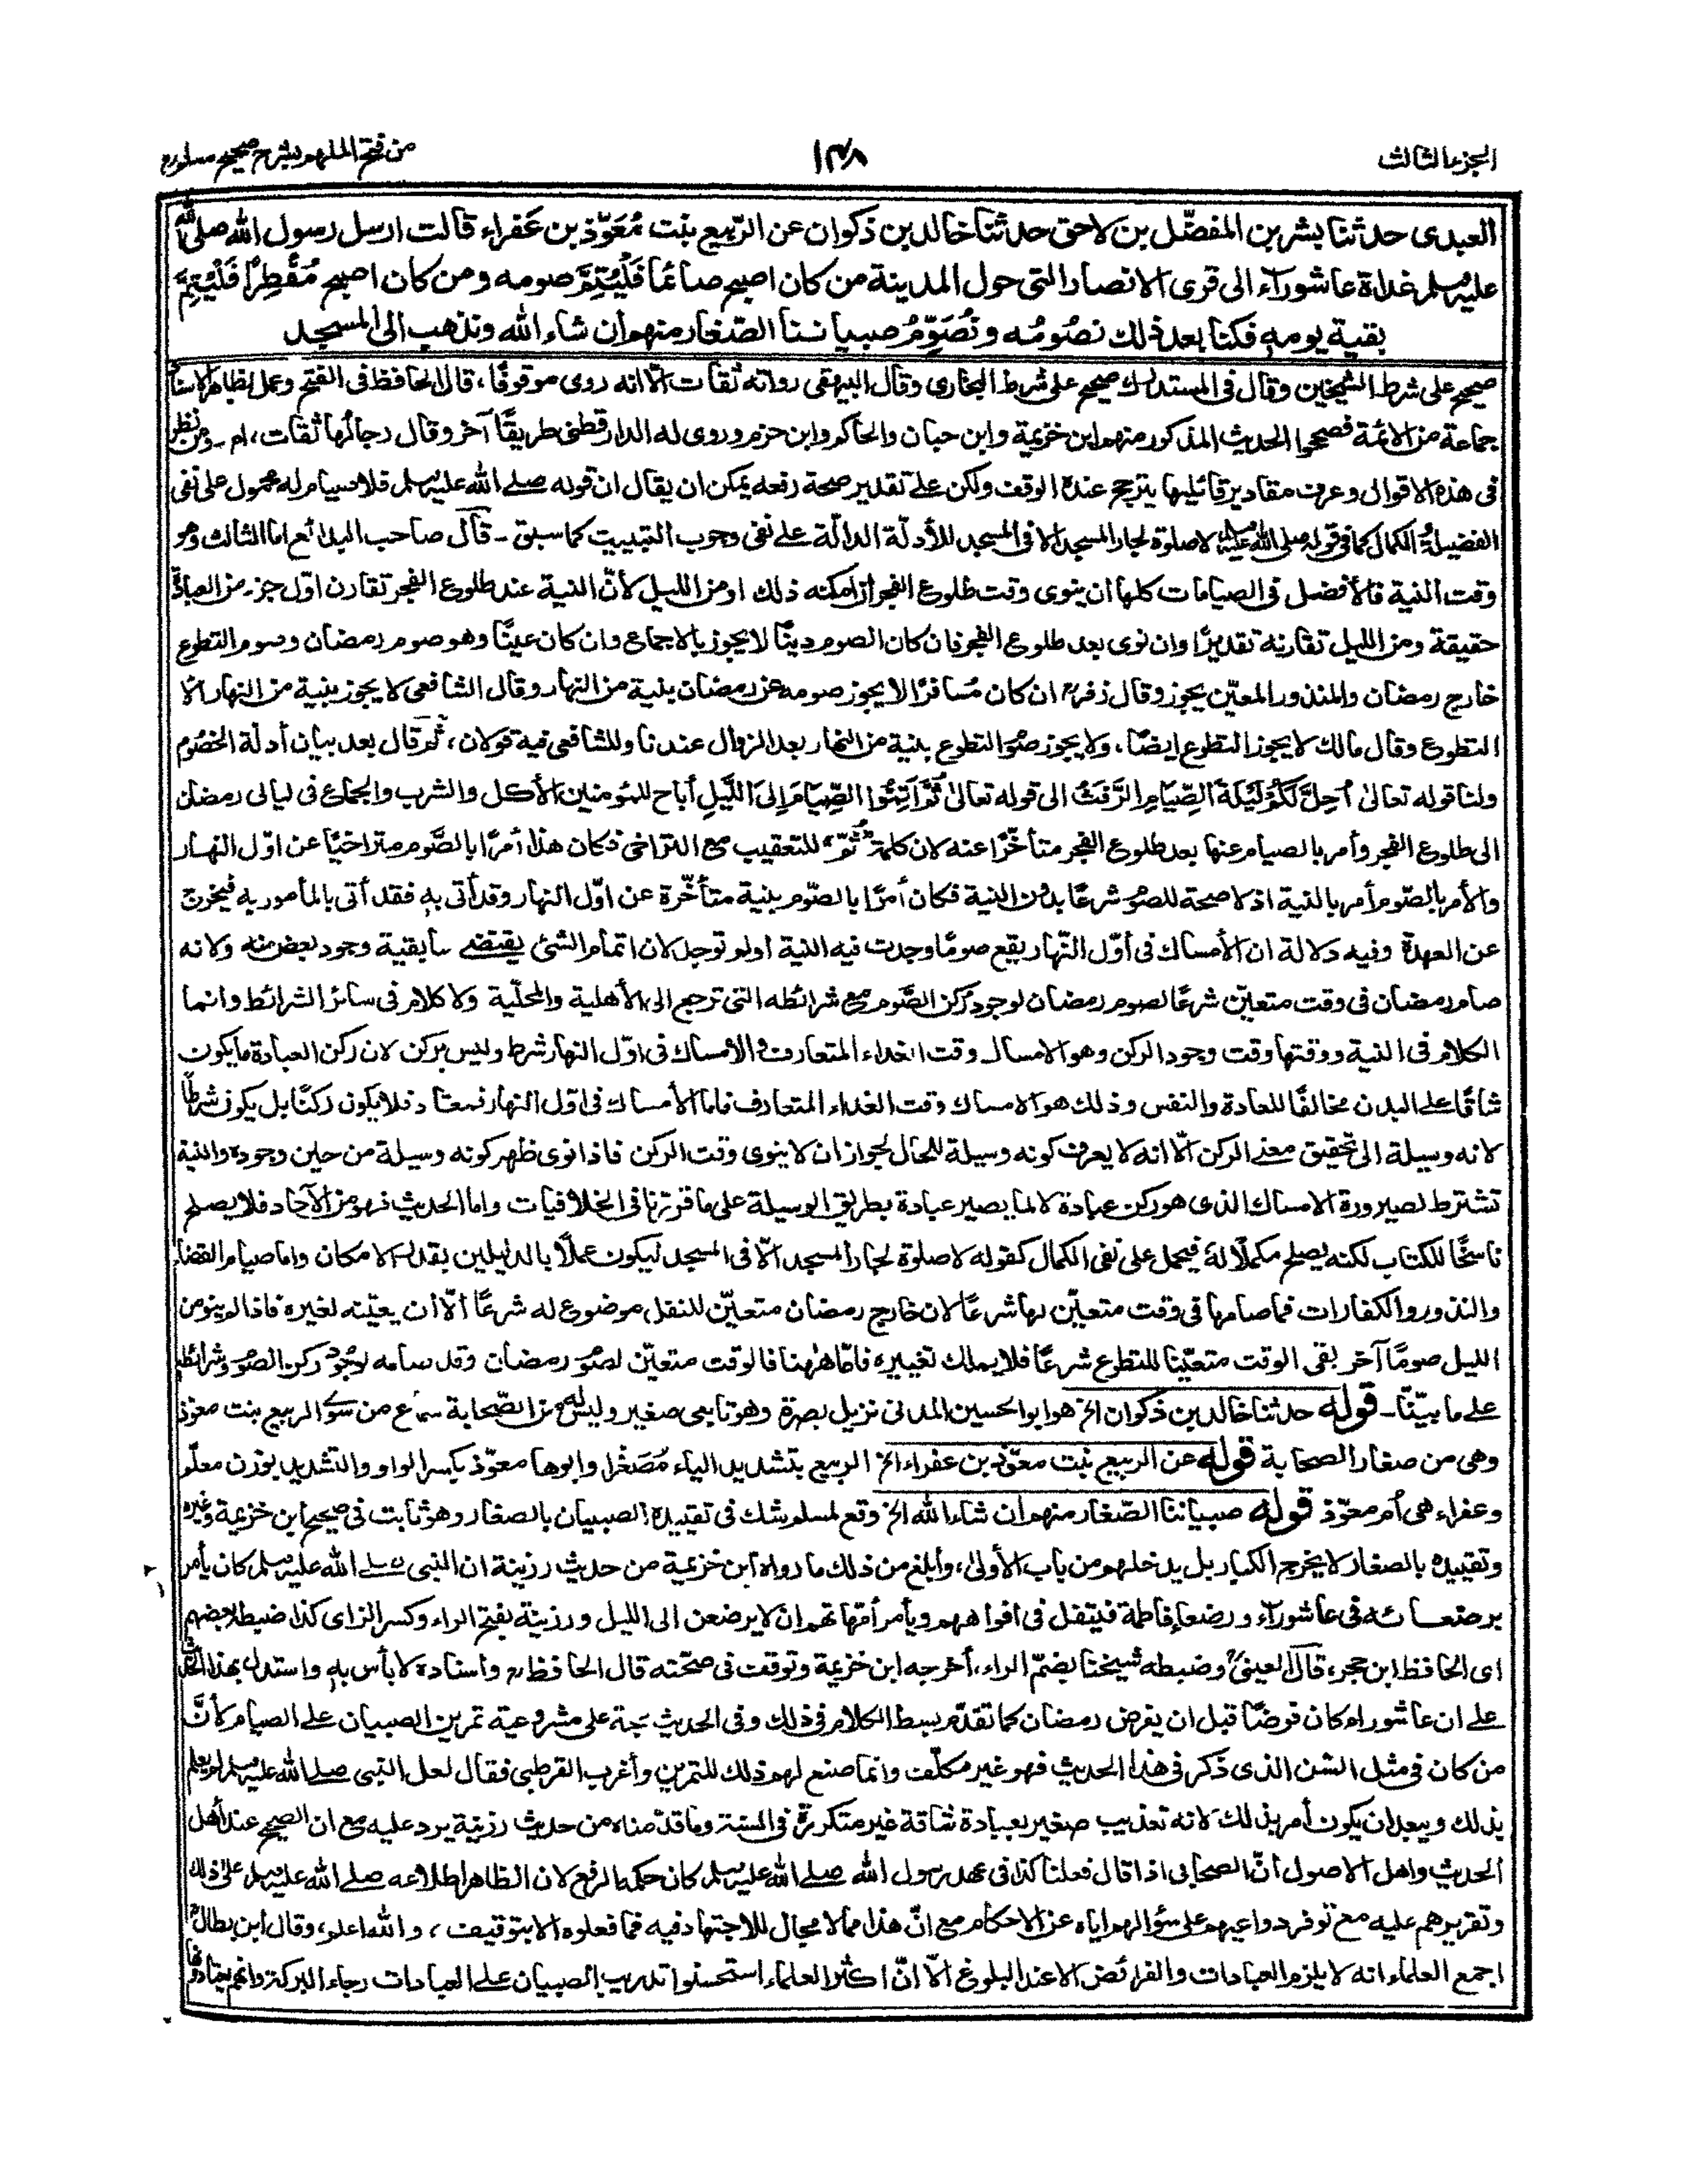 الجزء الثالث
١٤٨
من فتح الملهم بشرح صحيح مسلم
العبدى حدثنا بشر بن المفضّل بن لاحق حدثنا خالد بن ذكوان عن الرّبيع بنت مُعَوّذ بن عَفراء قالت ارسل رسول الله صلى الله
عليه وسلم غداة عاشوراء الى قرى الانصار التى حول المدينة من كان اصبح صائمًا فَلْيُتِمَّ صومه ومن كان اصبح مُفْطِرًا فَلْيُتِمَّ
بقية يومه فكنا بعد ذلك نصُومُه ونُصَوِّمُ صبياننا الصّغار منهم ان شاء الله ونذهب الى المسجد
صحيح على شرط الشيخين وقال فى المستدرك صحيح على شرط البخارى وقال البيهقى رواته ثقات الّا انه روى موقوفًا، قال الحافظ فى الفتح وعمل بظاهر الاسناد
جماعة من الائمة فصححوا الحديث المذكور منهم ابن خزيمة وابن حبان والحاكم وابن حزم وروى له الدارقطنى طريقًا آخر وقال رجالها ثقات، اهـ - ومن نظر
فى هذه الاقوال وعرف مقادير قائليها يترجح عنده الوقف ولكن على تقدير صحة رفعه يمكن ان يقال ان قوله صلى الله عليه وسلم فلا صيام له محمول على نفى
الفضيلة والكمال كما فى قوله صلى الله عليه وسلم لا صلوة لجار المسجد الا فى المسجد للأدلّة الدالّة على نفى وجوب التبييت كما سبق - قال صاحب البدائع اما الثالث وهو
وقت النية فالأفضل فى الصيامات كلها ان ينوى وقت طلوع الفجر ان امكنه ذلك او من الليل لأنّ النية عند طلوع الفجر تقارن اوّل جزء من العبادة
حقيقة ومن الليل تقارنه تقديرًا وان نوى بعد طلوع الفجر فان كان الصوم دينًا لا يجوز بالاجماع وان كان عينًا وهو صوم رمضان وصوم التطوع
خارج رمضان والمنذور المعيّن يجوز وقال زفر ان كان مُسافرًا لا يجوز صومه عن رمضان بنية من النهار وقال الشافعى لا يجوز بنية من النهار الّا
التطوع وقال مالك لا يجوز التطوع ايضًا، ولا يجوز صوم التطوع بنية من النهار بعد الزوال عندنا وللشافعى فيه قولان، ثم قال بعد بيان أدلة الخصُوم
ولنا قوله تعالىٰ أُحِلَّ لَكُمْ لَيْلَةَ الصِّيَامِ الرَّفَثُ الى قوله تعالىٰ ثُمَّ أَتِمُّوا الصِّيَامَ إِلَى اللَّيْلِ أباح للمؤمنين الأكل والشرب والجماع فى ليالى رمضان
الى طلوع الفجر وأمر بالصيام عنها بعد طلوع الفجر متأخّرًا عنه لان كلمة "ثُمّ" للتعقيب مع التراخى فكان هذا أمرًا بالصَّوم متراخيًا عن اوّل النهار
والأمر بالصّوم أمر بالنية اذ لا صحة للصوم شرعًا بدون النية فكان أمرًا بالصّوم بنية متأخّرة عن اوّل النهار وقد أتى به فقد أتى بالمأمور به فيخرج
عن العهدة وفيه دلالة ان الأمساك فى أوّل النّهار يقع صومًا وجدت فيه النية اولم توجد لان اتمام الشئ يقتضى سابقية وجود بعض منه ولانه
صام رمضان فى وقت متعيّن شرعًا لصوم رمضان لوجود ركن الصّوم مع شرائطه التى ترجع الى الأهلية والمحلّية ولا كلام فى سائر الشرائط وانما
الكلام فى النية ووقتها وقت وجود الركن وهو الامساك وقت الغداء المتعارف والأمساك فى اوّل النهار شرط وليس بركن لان ركن العبادة ما يكون
شاقًا على البدن مخالفًا للعادة والنفس وذلك هو الامساك وقت الغداء المتعارف فاما الأمساك فى اوّل النهار فمعتاد فلا يكون ركنًا بل يكون شرطًا
لانه وسيلة الى تحقيق معنى الركن الّا انه لا يعرف كونه وسيلة للحال لجواز ان لا ينوى وقت الركن فاذا نوى ظهر كونه وسيلة من حين وجوده والنية
تشترط لصيرورة الامساك الذى هو ركن عبادة لا لما يصير عبادة بطريق الوسيلة على ما قررنا فى الخلافيات واما الحديث فهو من الآحاد فلا يصلح
ناسخًا للكتاب لكنه يصلح مكملًا له فيحمل على نفى الكمال كقوله لا صلوة لجار المسجد الّا فى المسجد ليكون عملًا بالدليلين بقدر الامكان واما صيام القضاء
والنذور والكفارات فما صامها فى وقت متعيّن لها شرعًا لان خارج رمضان متعيّن للنفل موضوع له شرعًا الّا أن يعيّنه لغيره فاذا لم ينو من
الليل صومًا آخر بقى الوقت متعيّنا للتطوع شرعًا فلا يملك تغييره فامّا هٰهنا فالوقت متعيّن لصوم رمضان وقد صامه لوجود ركن الصوم وشرائطه
على ما بيّنّا - قوله حدثنا خالد بن ذكوان الخ هو ابو الحسين المدنى نزيل بصرة وهو تابعى صغير وليس له من الصّحابة سماع من سوى الربيع بنت معوّذ
وهى من صغار الصحابة قوله عن الربيع بنت معوّذ بن عفراء الخ الربيع بتشديد الياء مُصَغرًا وابوها معوّذ بكسر الواو والتشديد بوزن معلّم
وعفراء هى أم معوّذ قوله صبياننا الصّغار منهم ان شاء الله الخ وقع لمسلم شك فى تقييده الصبيان بالصغار وهو ثابت فى صحيح ابن خزيمة وغيره
وتقييده بالصغار لا يخرج الكبار بل يدخلهم من باب الأولىٰ، وأبلغ من ذلك ما رواه ابن خزيمة من حديث رزينة ان النبى صلى الله عليه وسلم كان يأمر
برضعائه فى عاشوراء ورضعاء فاطمة فيتفل فى افواههم ويأمر أمّهاتهم ان لا يرضعن الى الليل ورزينة بفتح الراء وكسر الزاى كذا ضبطه بعضهم
اى الحافظ ابن حجر، قال العينى وضبطه شيخنا بضمّ الراء، أخرجه ابن خزيمة وتوقف فى صحّته قال الحافظ واسناده لا بأس به واستدل بهذا الحديث
على ان عاشوراء كان فرضًا قبل ان يفرض رمضان كما تقدّم بسط الكلام فى ذلك وفى الحديث حجة على مشروعية تمرين الصبيان على الصيام لأنَّ
من كان فى مثل السّن الذى ذكر فى هذا الحديث فهو غير مكلّف وانما صنع لهم ذلك للتمرين وأغرب القرطبى فقال لعل النبى صلى الله عليه وسلم لم يعلم
بذلك ويبعد ان يكون أمر بذلك لانه تعذيب صغير بعبادة شاقة غير متكررة فى السنة وما قدّمناه من حديث رزينة يرد عليه مع ان الصحيح عند أهل
الحديث واهل الاصول أنّ الصحابى اذا قال فعلنا كذا فى عهد رسول الله صلى الله عليه وسلم كان حكمه الرفع لان الظاهر اطلاعه صلى الله عليه وسلم على ذلك
وتقريرهم عليه مع توفر دواعيهم على سؤالهم اياه عن الاحكام مع انّ هذا مما لا مجال للاجتهاد فيه فما فعلوه الا بتوقيف، والله اعلم، وقال ابن بطال
اجمع العلماء انه لا يلزم العبادات والفرائض الا عند البلوغ الّا انّ اكثر العلماء استحسنوا تدريب الصبيان على العبادات رجاء البركة وانهم يعتادونها